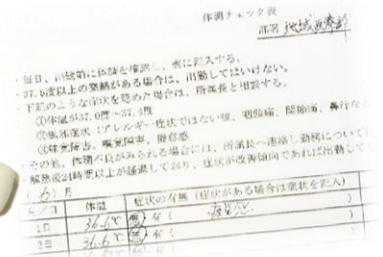 体調チェック表
部署 地域医療部
・毎日、出勤前に体調を確認し、表に記入する。
・37.5度以上の発熱がある場合は、出勤してはいけない。
・下記のような症状を認めた場合は、所属長と相談する。
①体温が37.0度〜37.4度
②風邪症状（アレルギー症状ではない咳、咽頭痛、関節痛、鼻汁など
③味覚障害、嗅覚障害、倦怠感
・その他、体調不良がみられる場合には、所属長へ連絡し勤務について
・解熱後24時間以上が経過しており、症状が改善傾向であれば出勤して
（6）月
月／日 体温 症状の有無（症状がある場合は症状を記入）
1日 36.6℃ 無・有（ ）
2日 36.6℃ 無・有（